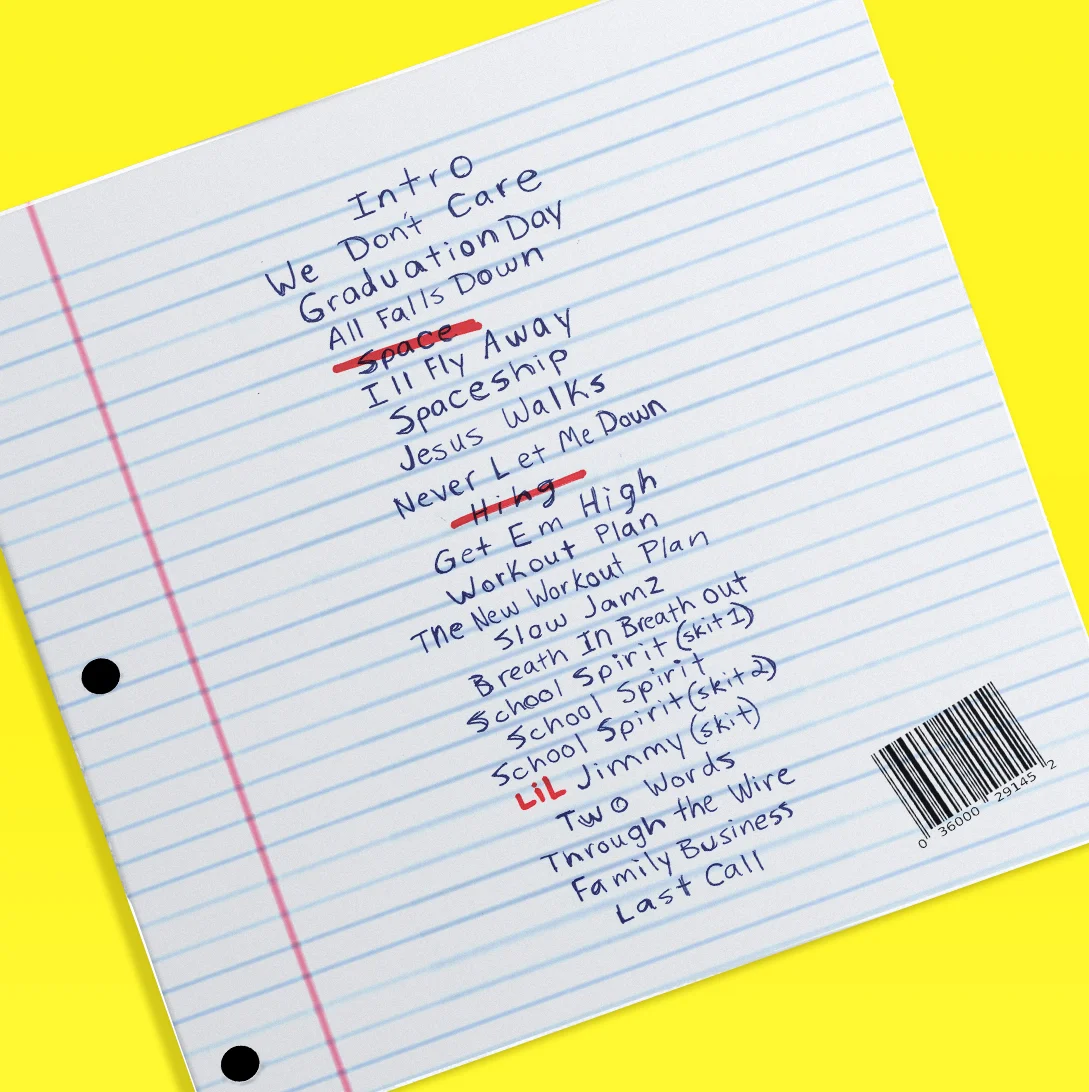 Intro
We Don't Care
Graduation Day
All Falls Down
Space
I ll Fly Away
Spaceship
Jesus Walks
Never Let Me Down
Hihg
Get Em High
Workout Plan
The New Workout Plan
Slow Jamz
Breath In Breath Out
School Spirit (skit 1)
School Spirit
School Spirit (skit 2)
LiL Jimmy (skit)
Two Words
Through the Wire
Family Business
Last Call
0 36000 29145 2